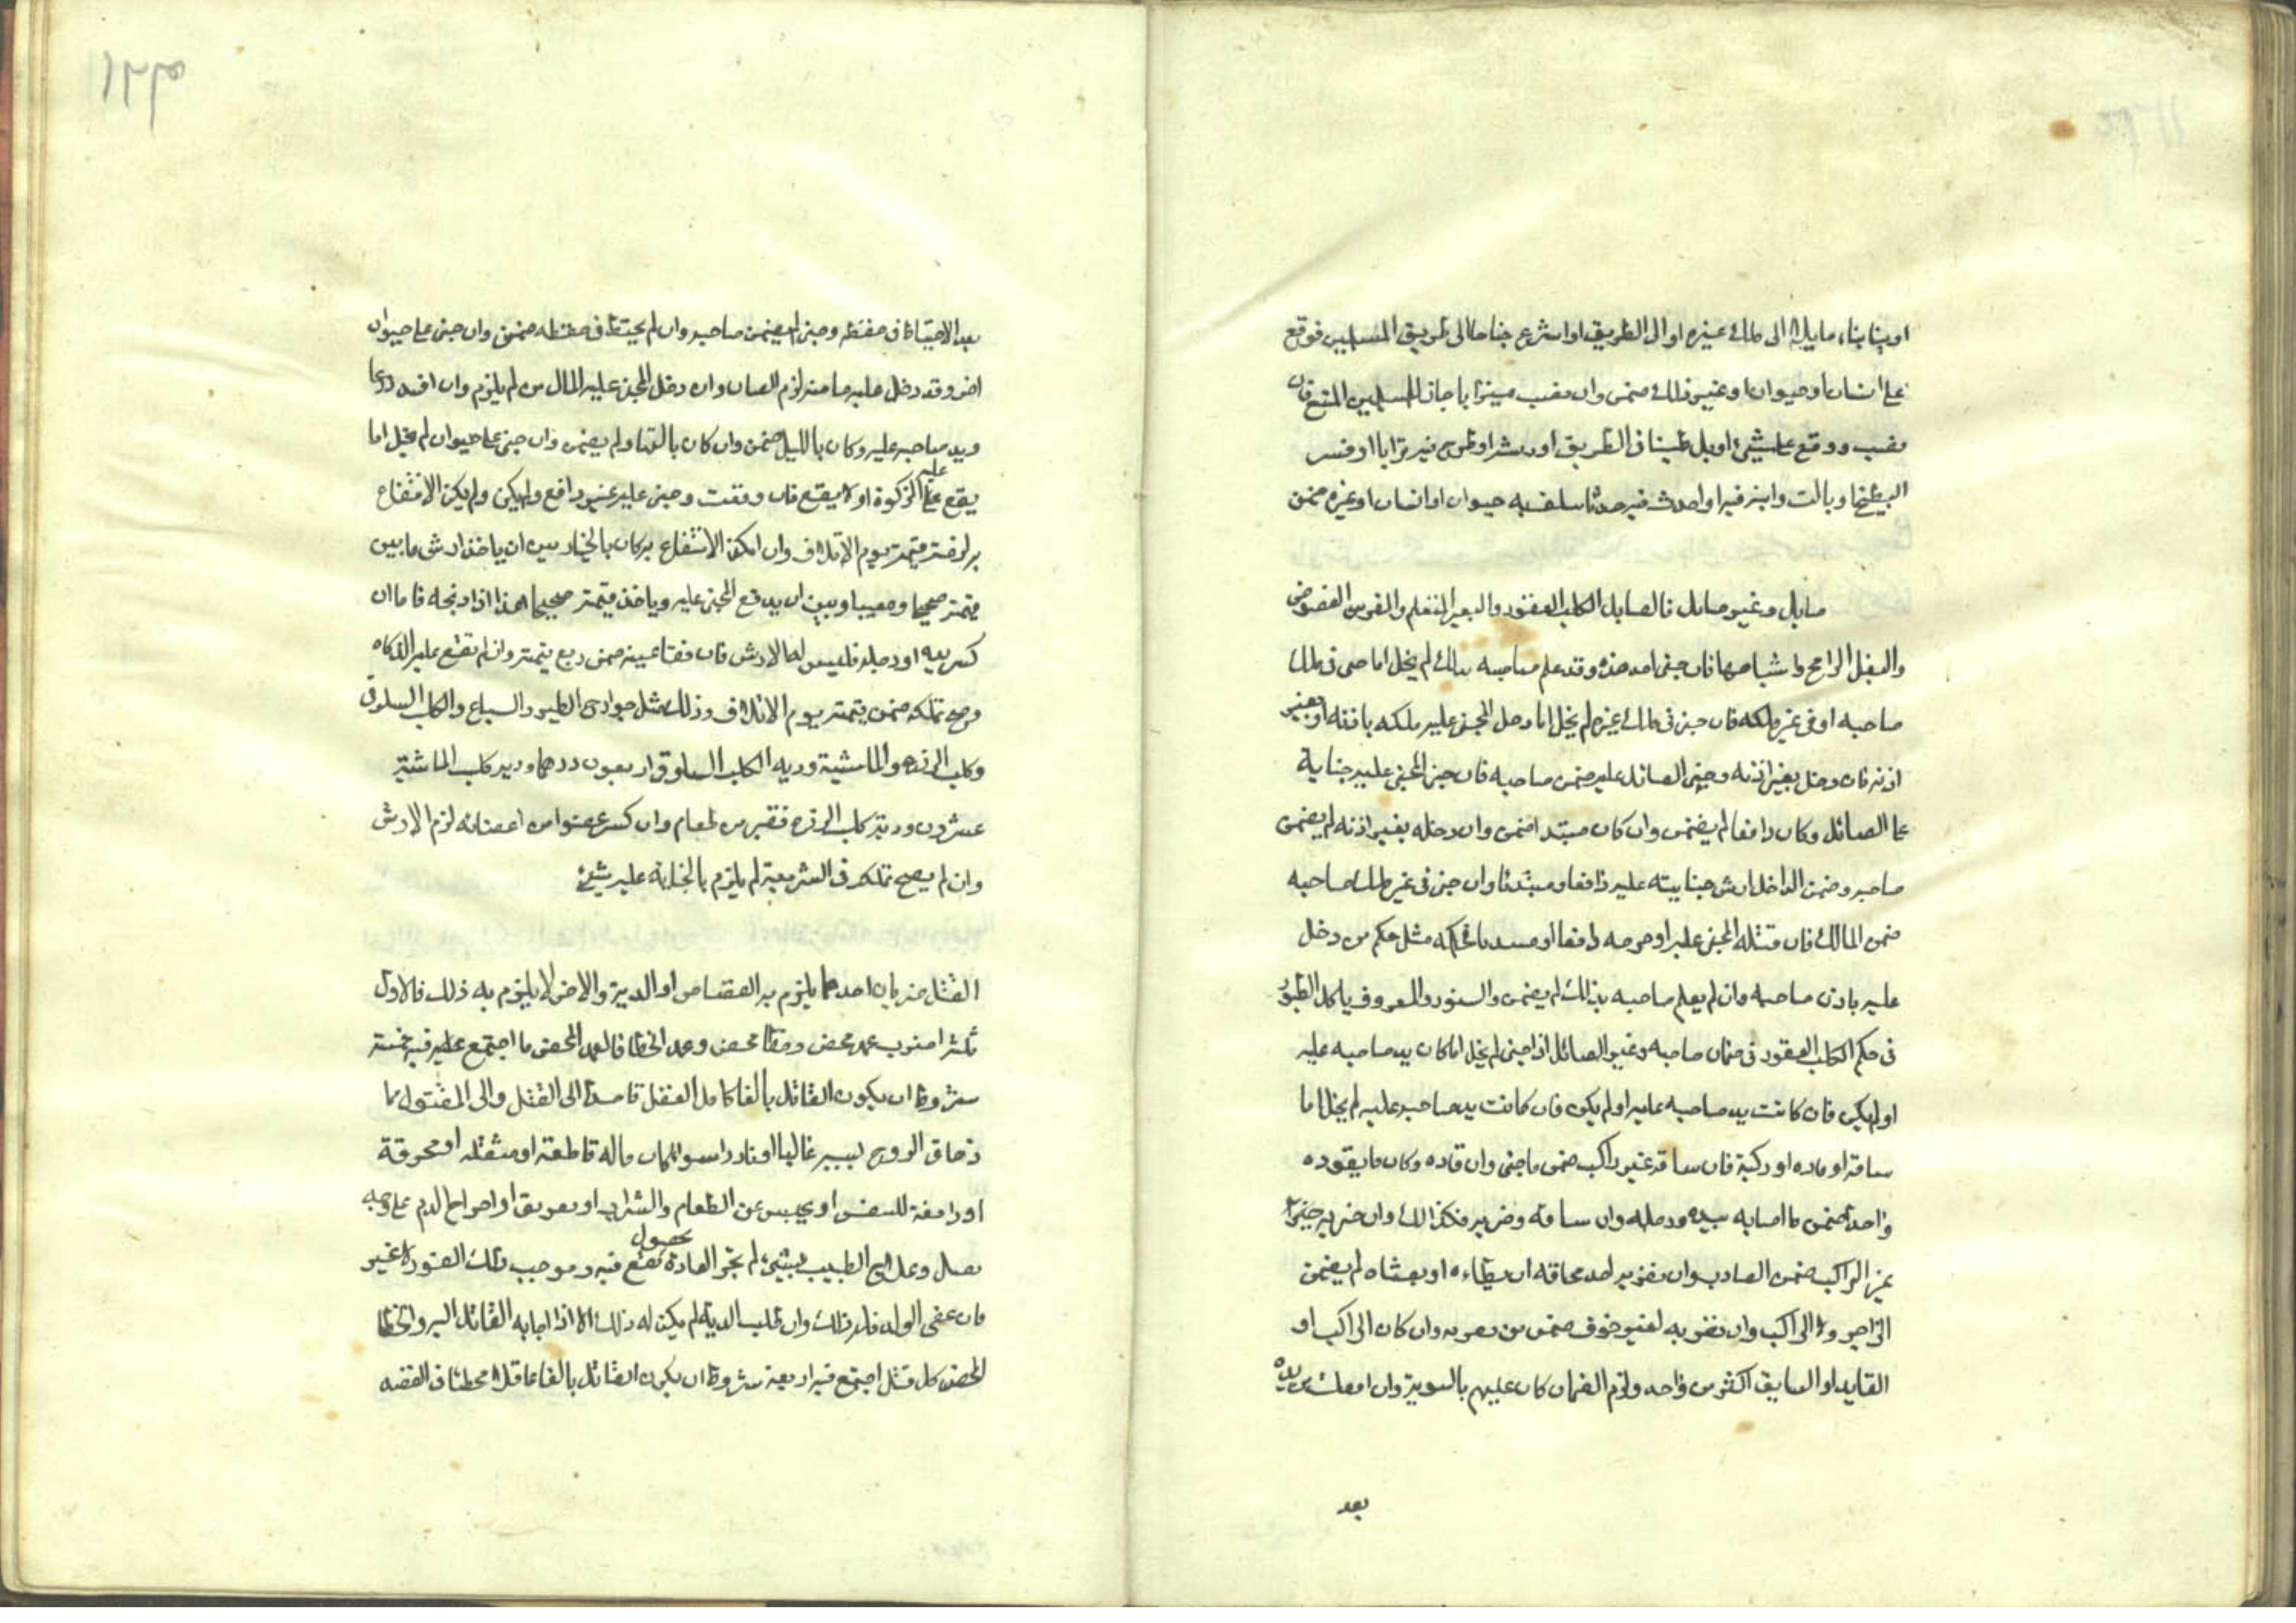 او بنا بناء مايلا الى ملك غيره او الى الطريق او اشرع جناحا الى طريق المسلمين فوقع
على انسان او حيوان او غير ذلك ضمن وان نصب ميزابا جاز للمسلمين المنع فان
نصب ووقع على شيئ او بل طينا فى الطريق او رش او طرح فيه ترابا او قشر
البطيخ او بالت دابته فيه او احدث فيه حدثا فتلف به حيوان او انسان او غيره ضمن
صايل وغير صايل فالصايل الكلب العقور والبعير المغتلم والفرس العضوض
والبغل الرامح واشباهها فان جنى احد هذه وقد علم صاحبه بذلك لم يخل اما جنى فى ملك
صاحبه او فى غير ملكه فان جنى فى ملك غيره لم يخل اما دخل المجنى عليه ملكه باذنه او بغير
اذنه فان دخل بغير اذنه وجنى الصائل عليه ضمن صاحبه فان جنى المجنى عليه جناية
على الصائل وكان دافعا لم يضمن وان كان مبتدا ضمن وان دخله بغير اذنه لم يضمن
صاحبه وضمن الداخل ارش جنايته عليه دافعا ومبتدئا وان جنى فى غير ملك صاحبه
ضمن المالك فان قتله المجنى عليه او جرحه دافعا او مبتدئا فحكمه مثل حكم من دخل
عليه باذن صاحبه وان لم يعلم صاحبه بذلك لم يضمن والسنور المعروف ياكل الطيور
فى حكم الكلب العقور فى ضمان صاحبه وغير الصائل اذا جنى لم يخل اما كان يد صاحبه عليه
او لم يكن فان كانت يد صاحبه عليه او لم يكن فان كانت يد صاحبه عليه لم يخل اما
ساقه او قاده او ركبه فان ساقه غير راكب ضمن ما جنى وان قاده وكان ما يقوده
واحدا ضمن ما اصابه بيده ورجله وان ساقه وضربه فكذلك وان ضربه
غير الراكب ضمن الضارب وان ضربه احد مخافة ان يطاءه او يغشاه لم يضمن
الزاجر ولا الراكب وان ضربه لغير خوف ضمن من ضربه وان كان الراكب او
القايد او السايق اكثر من واحد ولزم الضمان كان عليهم بالسوية وان افلت من يده
بعد
بعد الاحتياط فى حفظه وجنى لم يضمن صاحبه وان لم يحتط فى حفظه ضمن وان جنى على حيوان
اخر وقد دخل عليه مامنه لزم الضمان وان دخل المجنى عليه المال من لم يلزم وان افسد زرعا
ويد صاحبه عليه وكان بالليل ضمن وان كان بالنهار لم يضمن وان جنى على حيوان لم يخل اما
يقع عليه الزكوة او لا يقع فان وقعت وجنى عليه غير دافع ولم يكن ولم يكن الانتفاع
به لزمته قيمته يوم الاتلاف وان امكن الانتفاع به كان بالخيار بين ان ياخذ ارش ما بين
قيمته صحيحا ومعيبا وبين ان يدفع المجنى عليه وياخذ قيمته صحيحا هذا اذا ذبحه فاما ان
كسر يده او رجله فليس له الا الارش فان فقا عينه ضمن ربع قيمته وان لم تقع عليه الذكاه
وصح تملكه ضمن قيمته يوم الاتلاف وذلك مثل جوارح الطير والسباع والكلب السلوقى
وكلب الزرع والماشية ودية الكلب السلوقى اربعون درهما ودية كلب الماشية
عشرون ودية كلب الزرع قفيز من طعام وان كسر عضوا من اعضائه لزم الارش
وان لم يصح تملكه فى الشريعة لم يلزم بالجناية عليه شيئ
القتل ضربان احدهما يلزم به القصاص او الدية والاخر لا يلزم به ذلك فالاول
ثلثة اضرب عمد محض وخطا محض وعمد الخطا فالعمد المحض ما اجتمع عليه فيه خمسة
شروط ان يكون القاتل بالغا كامل العقل قاصدا الى القتل والى المقتول بما
زهاق الروح بسببه غالبا او نادرا سواء كان باله قاطعة او مثقلة او محرقة
او رامغة للنفس او بحبس عن الطعام والشراب او تغريق او اخراج الدم على وجه
وعلاج الطبيب بشيئ لم تجر العادة بحصول نفع فيه وموجب ذلك القود لا غير
فان عفى الولد فله ذلك وان طلب الدية لم يكن له ذلك الا اذا اجابه القاتل اليه والخطا
المحض كل قتل اجتمع فيه اربعة شروط ان يكون القاتل بالغا عاقلا مخطئا فى القصد